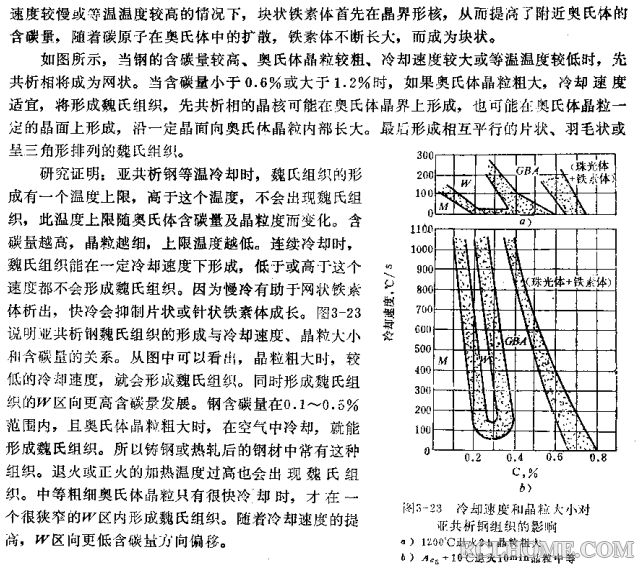 速度较慢或等温温度较高的情况下，块状铁素体首先在晶界形核，从而提高了附近奥氏体的
含碳量，随着碳原子在奥氏体中的扩散，铁素体不断长大，而成为块状。
如图所示，当钢的含碳量较高、奥氏体晶粒较粗、冷却速度较大或等温温度较低时，先
共析相将成为网状。当含碳量小于0.6%或大于1.2%时，如果奥氏体晶粒粗大，冷却速度
适宜，将形成魏氏组织，先共析相的晶核可能在奥氏体晶界上形成，也可能在奥氏体晶粒一
定的晶面上形成，沿一定晶面向奥氏体晶粒内部长大。最后形成相互平行的片状、羽毛状或
呈三角形排列的魏氏组织。
研究证明：亚共析钢等温冷却时，魏氏组织的形
成有一个温度上限，高于这个温度，不会出现魏氏组
织，此温度上限随奥氏体含碳量及晶粒度而变化。含
碳量越高，晶粒越细，上限温度越低。连续冷却时，
魏氏组织能在一定冷却速度下形成，低于或高于这个
速度都不会形成魏氏组织。因为慢冷有助于网状铁素
体析出，快冷会抑制片状或针状铁素体成长。图3-23
说明亚共析钢魏氏组织的形成与冷却速度、晶粒大小
和含碳量的关系。从图中可以看出，晶粒粗大时，较
低的冷却速度，就会形成魏氏组织。同时形成魏氏组
织的W区向更高含碳量发展。钢含碳量在0.1～0.5%
范围内，且奥氏体晶粒粗大时，在空气中冷却，就能
形成魏氏组织。所以铸钢或热轧后的钢材中常有这种
组织。退火或正火的加热温度过高也会出现魏氏组
织。中等粗细奥氏体晶粒只有很快冷却时，才在一
个很狭窄的W区内形成魏氏组织。随着冷却速度的提
高，W区向更低含碳量方向偏移。
300
200
100
0
M
W
GBA
(珠光体
+铁素体)
a)
1100
1000
900
800
700
600
500
400
300
200
100
0
冷却速度，℃/s
M
W
GBA
(珠光体+铁素体)
0.2
0.4
0.6
0.8
C,%
b)
图3-23 冷却速度和晶粒大小对
亚共析钢组织的影响
a) 1200℃退火2h晶粒粗大
b) Ac3+10℃退火10min晶粒中等